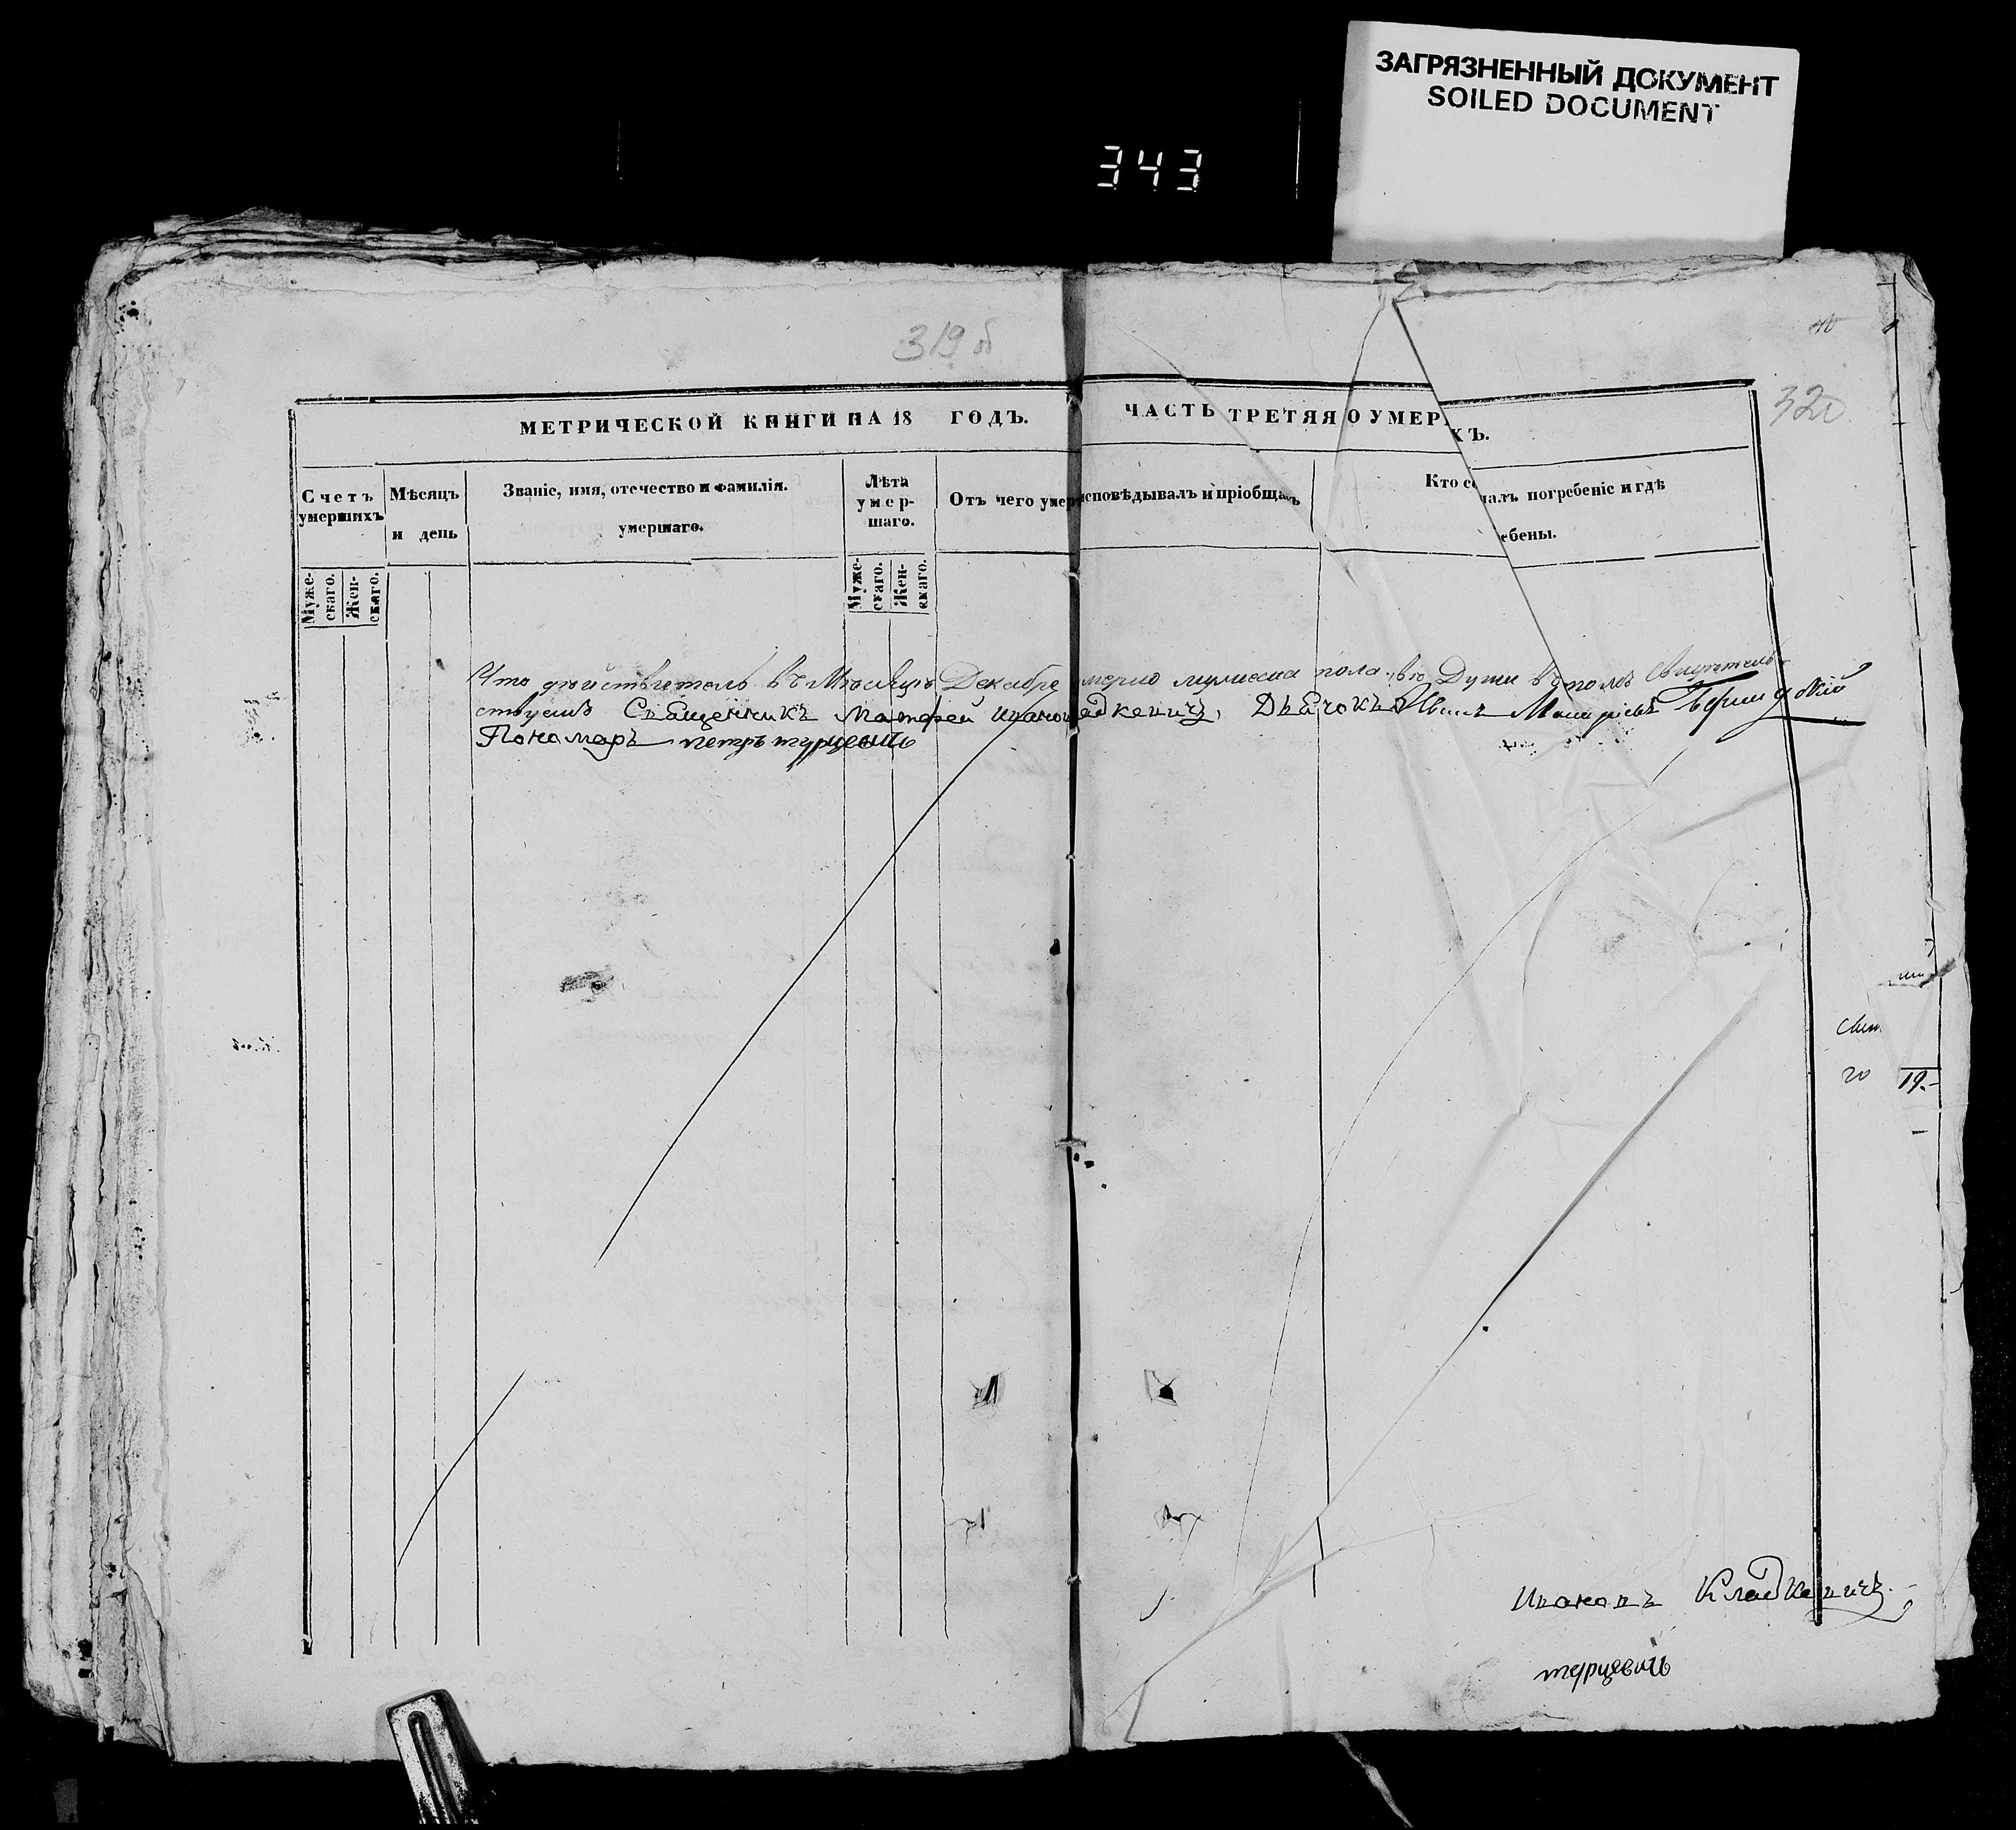 ЗАГРЯЗНЕННЫЙ ДОКУМЕНТ
SOILED DOCUMENT
343
319 б
320
МЕТРИЧЕСКОЙ КНИГИ НА 18 ГОДЪ. ЧАСТЬ ТРЕТЯЯ О УМЕР ХЪ.
Счетъ умершихъ
Мѣсяцъ и день
Званіе, имя, отечество и фамилія. умершаго.
Лѣта умер-шаго.
Отъ чего умер
исповѣдывалъ и пріобща ъ
Кто со
чалъ погребеніе и гдѣ
ебены.
Муже-скаго.
Жен-скаго.
Муже-скаго.
Жен-скаго.
Что дѣйствитель въ Мѣсяцѣ Декабре умерло мужеска пола Души въ томъ Свидѣтель
ствуемъ Священникъ Матфей Иванов едкевичъ, Дьячокъ Иванъ
Пономаръ петръ турцевичъ
20
19.-
Ивановъ Кладкевичъ.
турцевичъ